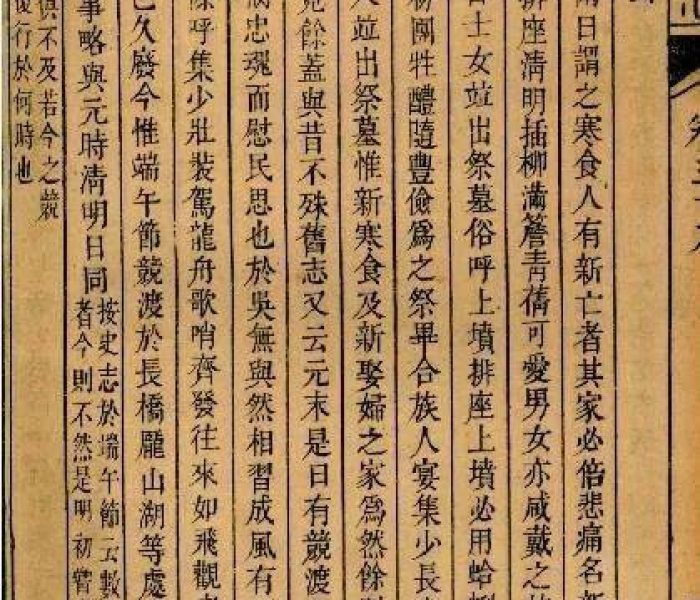 日謂之寒食人有新亡者其家必倍悲痛名新
排座清明插柳滿簷青蒨可愛男女亦咸戴之
士女竝出祭墓俗呼上墳排座上墳必用蛤蜊
團牲醴隨豐儉爲之祭畢合族人宴集少長
人竝出祭墓惟新寒食及新娶婦之家爲然餘
餘蓋與昔不殊舊志又云元末是日有競渡
忠魂而慰民思也於吳無與然相習成風有
呼集少壯裝駕龍舟歌哨齊發往來如飛觀
已久廢今惟端午節競渡於長橋龐山湖等處
事略與元時淸明日同
按史志於端午節云數
者今則不然是明初嘗
俱不及若今之競
復行於何時也